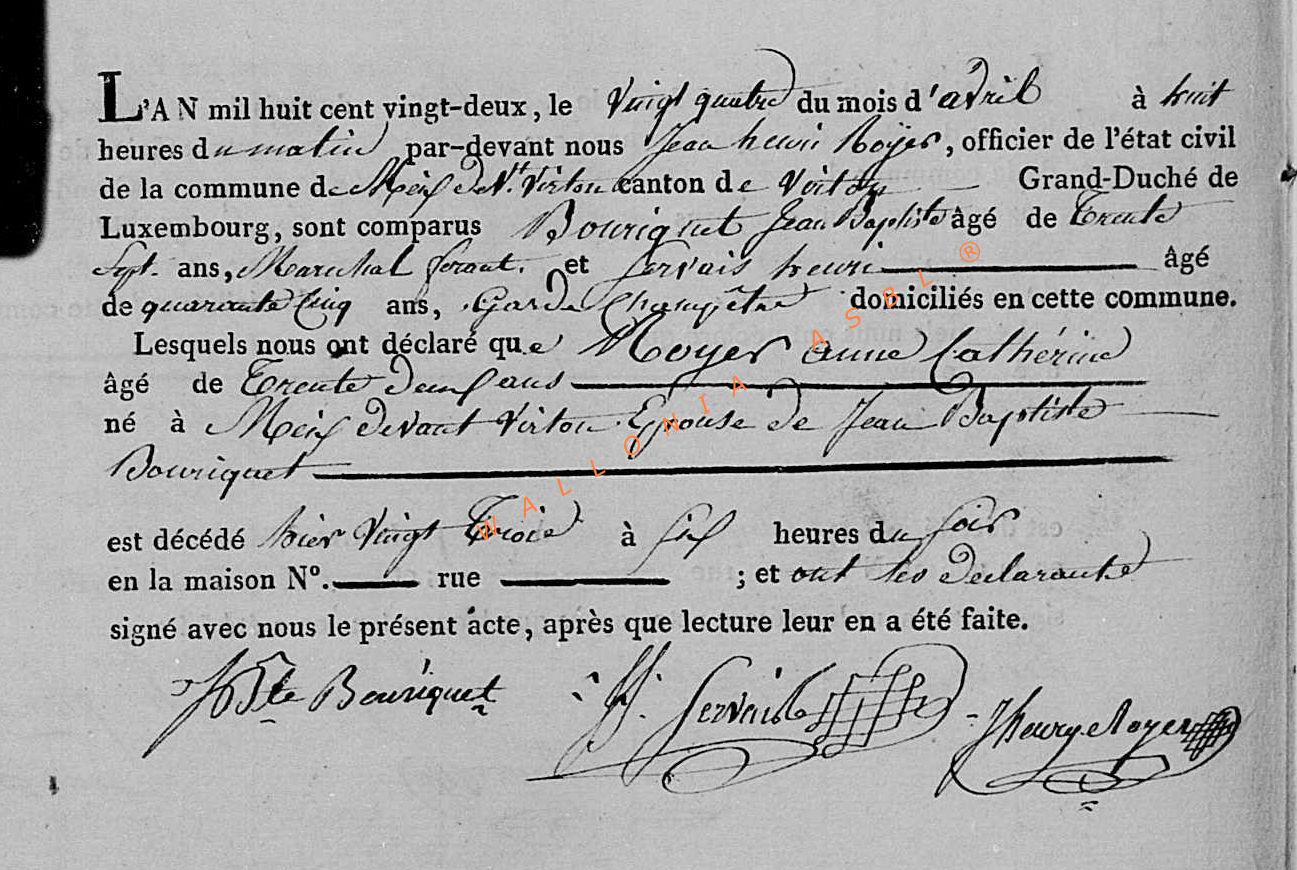 L'AN mil huit cent vingt-deux, le vingt quatre du mois d'avril à huit
heures du matin par-devant nous Jean henri Royer, officier de l'état civil
de la commune de Meix devt. Virton canton de Virton Grand-Duché de
Luxembourg, sont comparus Bouriquet Jean Baptiste âgé de trente
Sept. ans, Marechal feraut. et Servais henri âgé
de quarante Cinq ans, Garde Champêtre domiciliés en cette commune.
Lesquels nous ont déclaré que Royer anne Cathérine
âgé de trente deux ans
né à Meix devant Virton Epouse de Jean Baptiste
Bouriquet
est décédé hier vingt trois à six heures du soir
en la maison N°. rue ; et ont les declarants
signé avec nous le présent acte, après que lecture leur en a été faite.
JBste Bouriquet
H. Servais
JhenryRoyer
WALLONIA ASBL ®